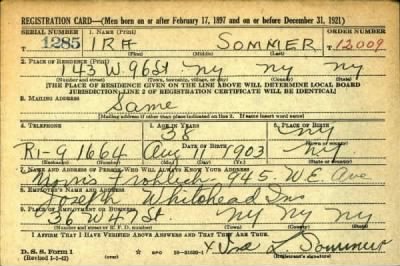 REGISTRATION CARD—(Men born on or after February 17, 1897 and on or before December 31, 1921)
SERIAL NUMBER 1. NAME (Print) ORDER NUMBER
1285 IRA SOMMER 12009
(First) (Middle) (Last)
2. PLACE OF RESIDENCE (Print)
143 W. 96 St NY NY NY
(Number and street) (Town, township, village, or city) (County) (State)
[THE PLACE OF RESIDENCE GIVEN ON THE LINE ABOVE WILL DETERMINE LOCAL BOARD
JURISDICTION; LINE 2 OF REGISTRATION CERTIFICATE WILL BE IDENTICAL]
3. MAILING ADDRESS
Same
[Mailing address if other than place indicated on line 2. If same insert word same]
4. TELEPHONE 5. AGE IN YEARS 6. PLACE OF BIRTH
38 NY
DATE OF BIRTH
RI-9 1664 Aug 11 1903 NY
(Exchange) (Number) (Mo.) (Day) (Yr.) (State or country)
7. NAME AND ADDRESS OF PERSON WHO WILL ALWAYS KNOW YOUR ADDRESS
Morris Frohlich, 945 W.E. Ave
8. EMPLOYER'S NAME AND ADDRESS
Joseph Whitehead Ins
9. PLACE OF EMPLOYMENT OR BUSINESS
236 W 47 St. NY NY NY
(Number and street or R. F. D. number) (Town) (County) (State)
I AFFIRM THAT I HAVE VERIFIED ABOVE ANSWERS AND THAT THEY ARE TRUE.
D. S. S. Form 1 GPO
(Revised 1-1-42) x Ira L Sommer
(Registrant's signature)